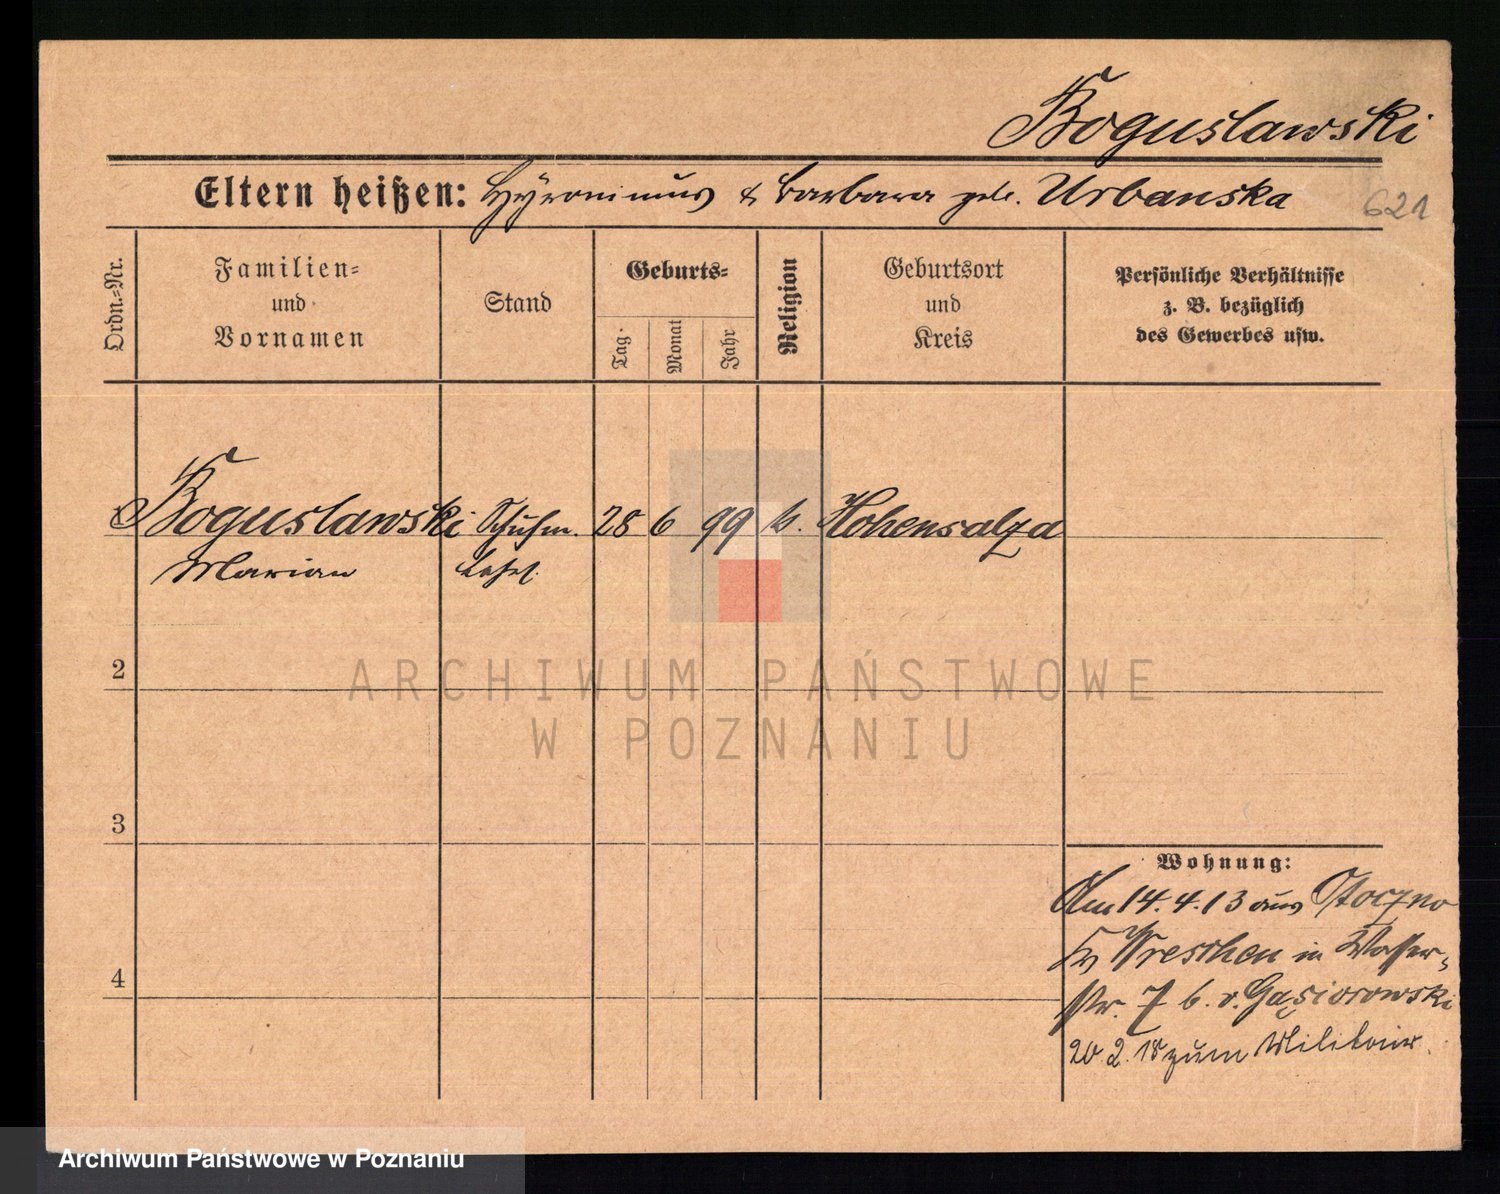 Boguslawski
Eltern heißen: Hÿronimus & Barbara geb. Urbanska
621
Ordn.=Nr.
Familien=
und
Vornamen
Stand
Geburts=
Tag
Monat
Jahr
Religion
Geburtsort
und
Kreis
Persönliche Verhältnisse
z. B. bezüglich
des Gewerbes usw.
Boguslawski Schuhm. 28 6 99 k. Hohensalza
Marian Lehrl.
2
ARCHIWUM PAŃSTWOWE
W POZNANIU
3
Wohnung:
Am 14.4.13 aus Stoczno
Wreschen in Wasser-
4
str. 7 b. v. Gąsiorowski
20.2.18 zum Militair.
Archiwum Państwowe w Poznaniu